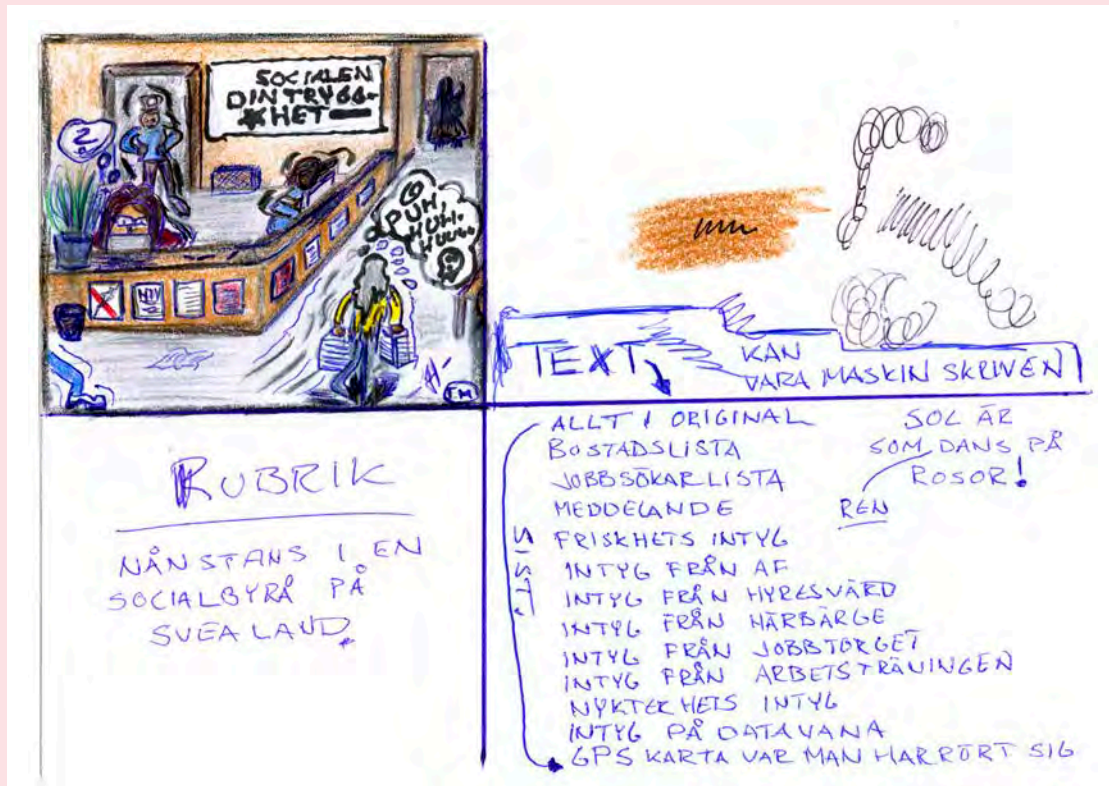 SOCIALEN
DIN TRYGG-
HET
?
PUH,
HUH.
HUU..
NIV
TM
TEXT
KAN
VARA MASKIN SKRIVEN
RUBRIK
NÅNSTANS I EN
SOCIALBYRÅ PÅ
SVEALAND.
ALLT I ORIGINAL
BOSTADSLISTA
JOBBSÖKARLISTA
MEDDELANDE
FRISKHETS INTYG
INTYG FRÅN AF
INTYG FRÅN HYRESVÄRD
INTYG FRÅN HÄRBÄRGE
INTYG FRÅN JOBBTORGET
INTYG FRÅN ARBETSTRÄNINGEN
NYKTERHETS INTYG
INTYG PÅ DATAVANA
GPS KARTA VAR MAN HAR RÖRT SIG
SIST.
SOL ÄR
SOM DANS PÅ
ROSOR!
REN